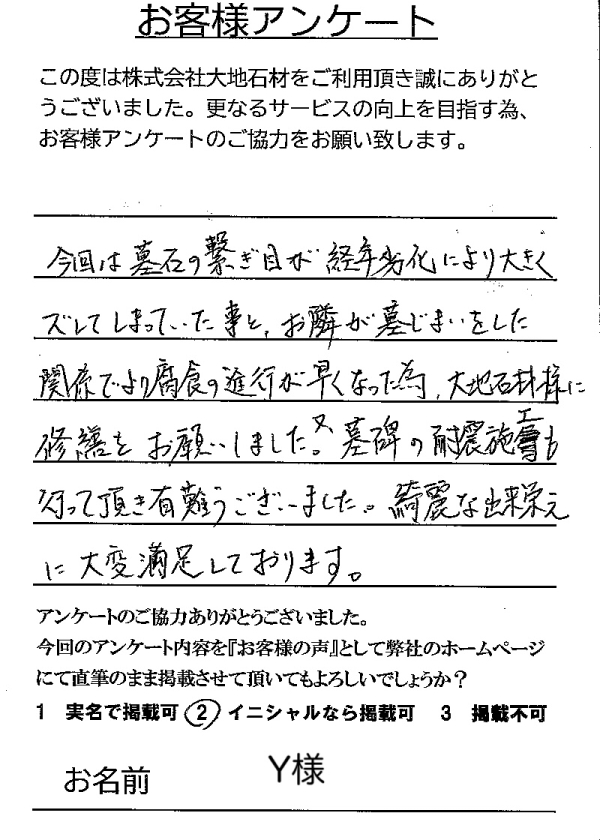 お客様アンケート
この度は株式会社大地石材をご利用頂き誠にありがと
うございました。更なるサービスの向上を目指す為、
お客様アンケートのご協力をお願い致します。
今回は墓石の繋ぎ目が経年劣化により大きく
ズレてしまっていた事と、お隣が墓じまいをした
関係でより腐食の進行が早くなった為、大地石材様に
修繕をお願いしました。又墓碑の耐震施工も
行って頂き有難うございました。綺麗な出来栄え
に大変満足しております。
アンケートのご協力ありがとうございました。
今回のアンケート内容を『お客様の声』として弊社のホームページ
にて直筆のまま掲載させて頂いてもよろしいでしょうか?
1 実名で掲載可 2 イニシャルなら掲載可 3 掲載不可
お名前 Y様